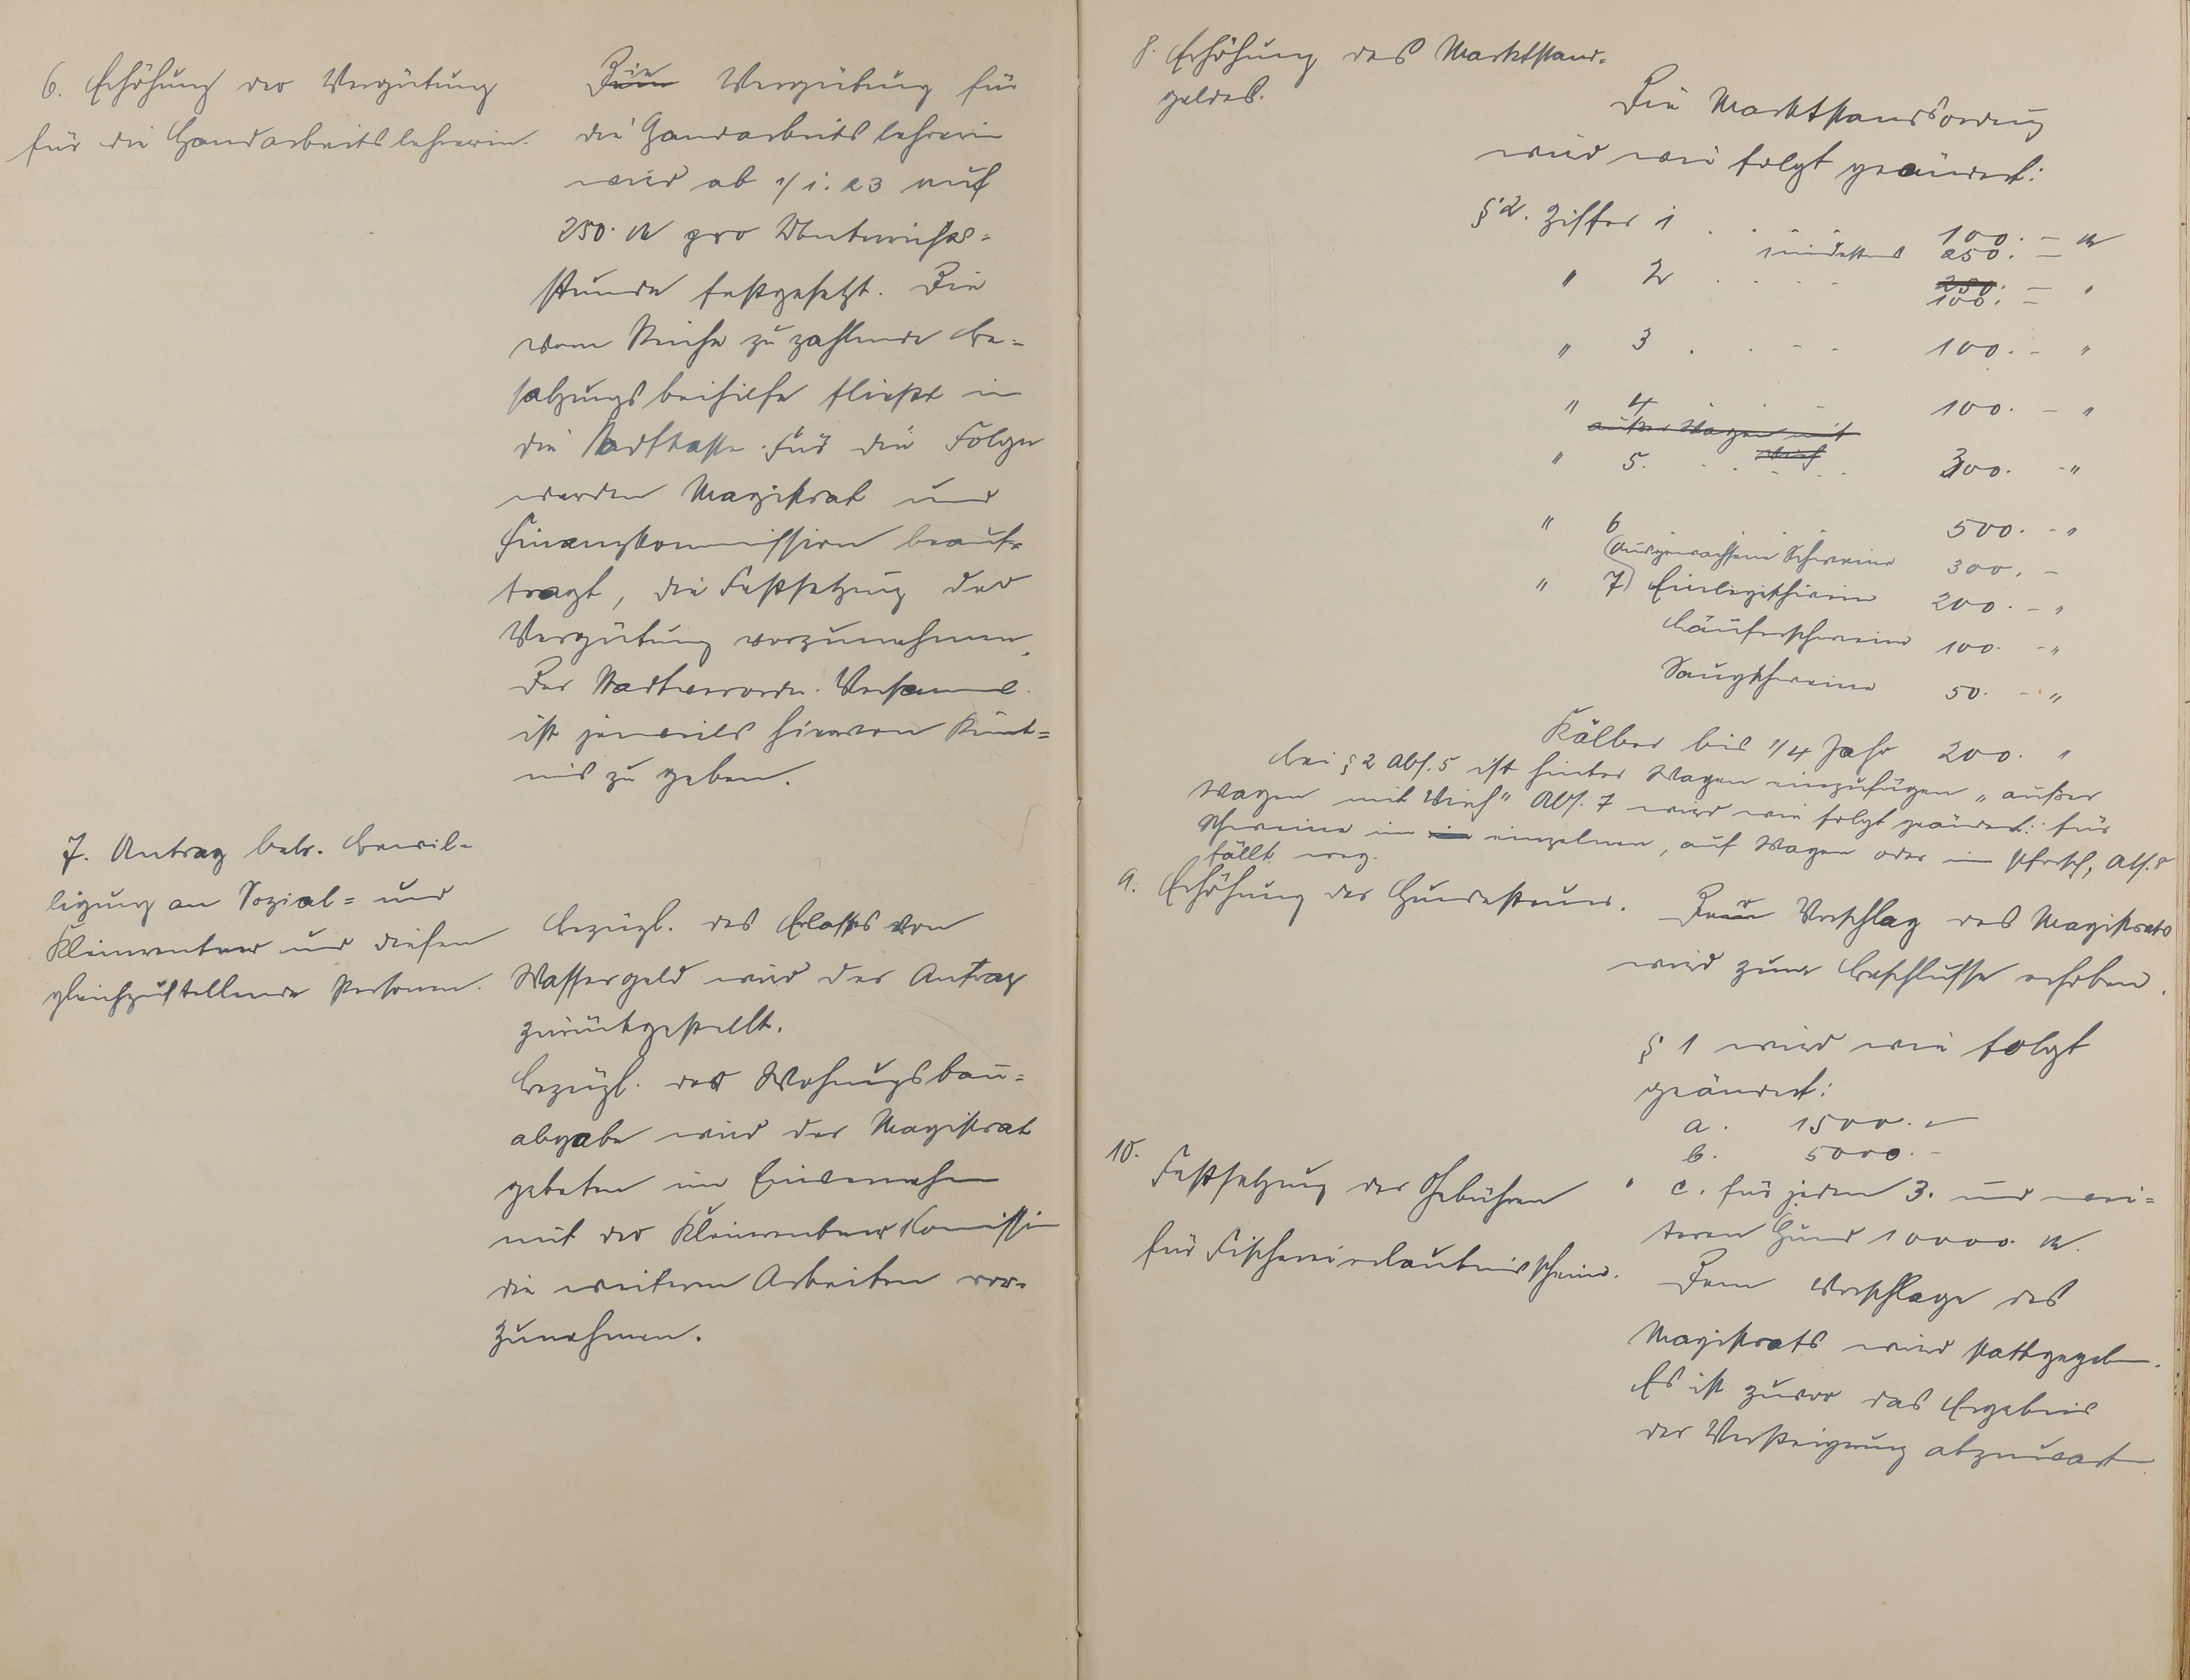 6. Erhöhung der Vergütung
für die Handarbeitslehrerin.
Die Vergütung für
die Handarbeitslehrerin
wird ab 1/1. 23 auf
250. M pro Unterrichts=
stunde festgesetzt. Die
vom Reiche zu zahlende Be=
satzungsbeihilfe fliesst in
die Stadtkasse. Für die Folge
werden Magistrat und
Finanzkommission beauf=
tragt, die Festsetzung der
Vergütung vorzunehmen.
Der Stadtverordn. Versamml.
ist jeweils hiervon Kennt=
nis zu geben.
7. Antrag betr. Bewil=
ligung an Sozial= und
Kleinrentner und diesen
gleichzustellende Personen.
Bezügl. des Erlasses von
Wassergeld wird der Antrag
zurückgestellt.
Bezügl. der Wohnungsbau=
abgabe wird der Magistrat
gebeten im Einvernehmen
mit der Kleinrentner Kommission
die weiteren Arbeiten vor=
zunehmen.
8. Erhöhung des Marktstand=
geldes.
Die Marktstandsordnung
wird wie folgt geändert:
§ 2. Ziffer 1 . . . 100. — M
mindestens 250. —
" 2 . . . . 250. — "
100. —
" 3 . . - - 100. - "
" 4 . . - 100. - "
außer Wagen mit
Vieh
" 5. . . - . . 300. - "
" 6 . . . 500. - "
(ausgewachsene Schweine 300. -
" 7) Einlegschweine 200. - "
Läuferschweine 100. - "
Saugschweine 50. - "
Kälber bis 1/4 Jahr 200. "
Bei § 2 Abs. 5 ist hinter Wagen einzufügen „außer
Wagen mit Vieh" Abs. 7 wird wie folgt geändert: für
Schweine im einzelnen, auf Wagen oder im Pferch, Abs. 8
fällt weg.
9. Erhöhung der Hundesteuer.
Der Vorschlag des Magistrats
wird zum Beschlusse erhoben.
§ 1 wird wie folgt
geändert:
a. 1500. —
b. 5000. —
" c. für jeden 3. und wei=
teren Hund 10000. M.
10.
Festsetzung der Gebühren
für Fischereierlaubnisscheine.
Dem Vorschlage des
Magistrats wird stattgegeben.
Es ist zuvor das Ergebnis
der Versteigerung abzuwarten.